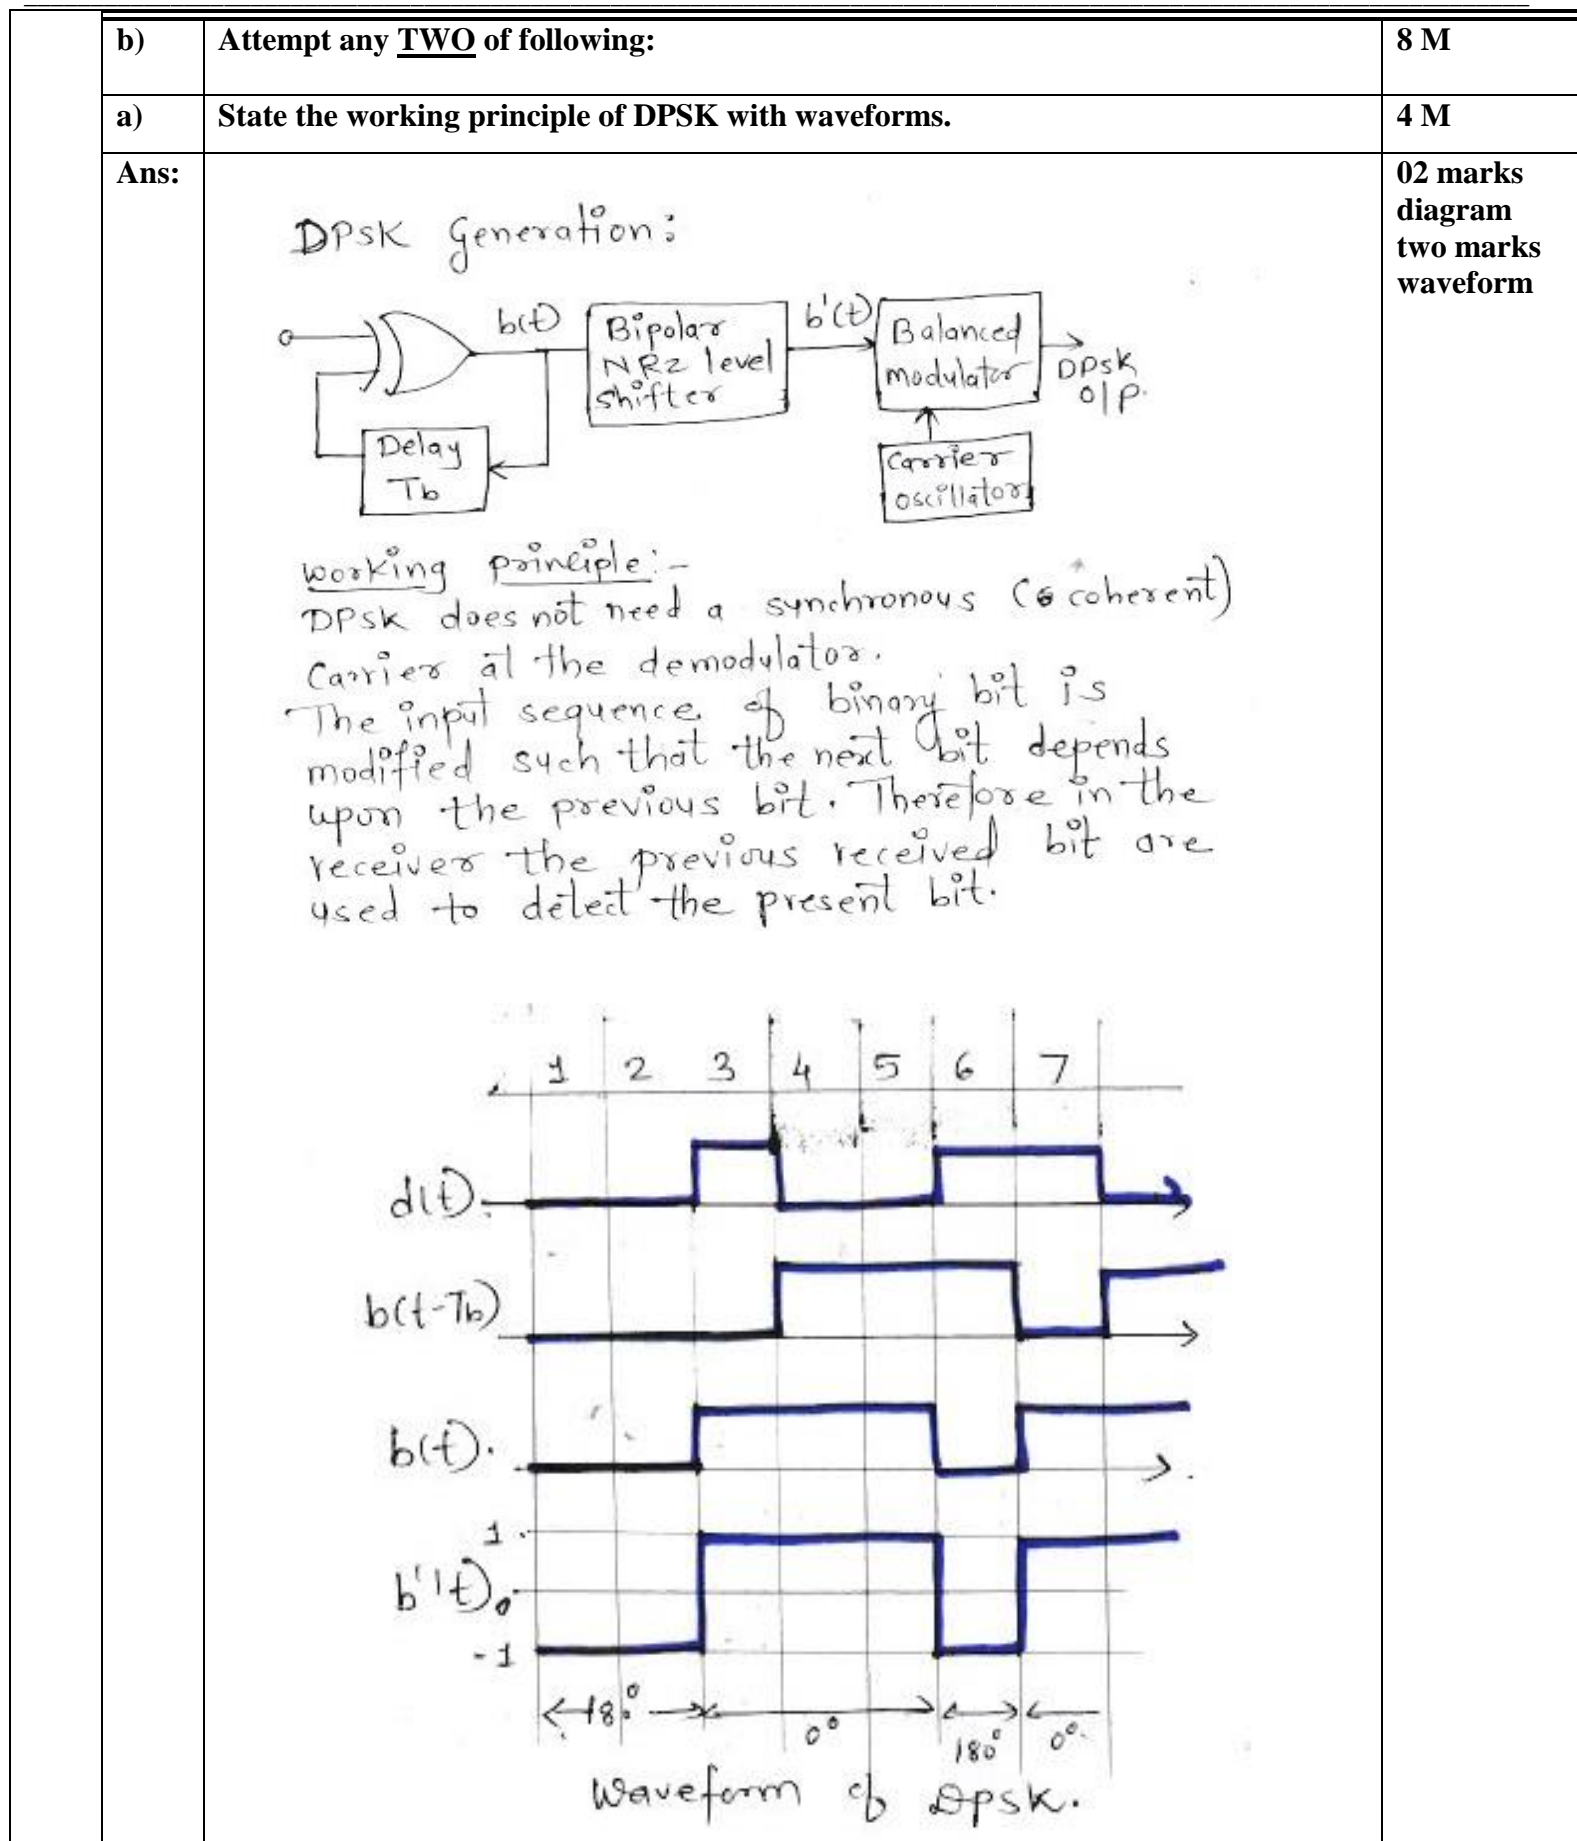 b) Attempt any TWO of following: 8 M
a) State the working principle of DPSK with waveforms. 4 M
Ans: 02 marks
diagram
two marks
waveform
DPSK Generation:
b(t)
Bipolar
NRZ level
shifter
b'(t)
Balanced
modulator
DPSK
O/P.
Delay
Tb
Carrier
oscillator
Working principle:-
DPSK does not need a synchronous (coherent)
Carrier at the demodulator.
The input sequence of binary bit is
modified such that the next bit depends
upon the previous bit. Therefore in the
receiver the previous received bit are
used to detect the present bit.
1 2 3 4 5 6 7
d(t).
b(t-Tb)
b(t).
1
b'(t) 0
-1
180° 0° 180° 0°
Waveform of DPSK.